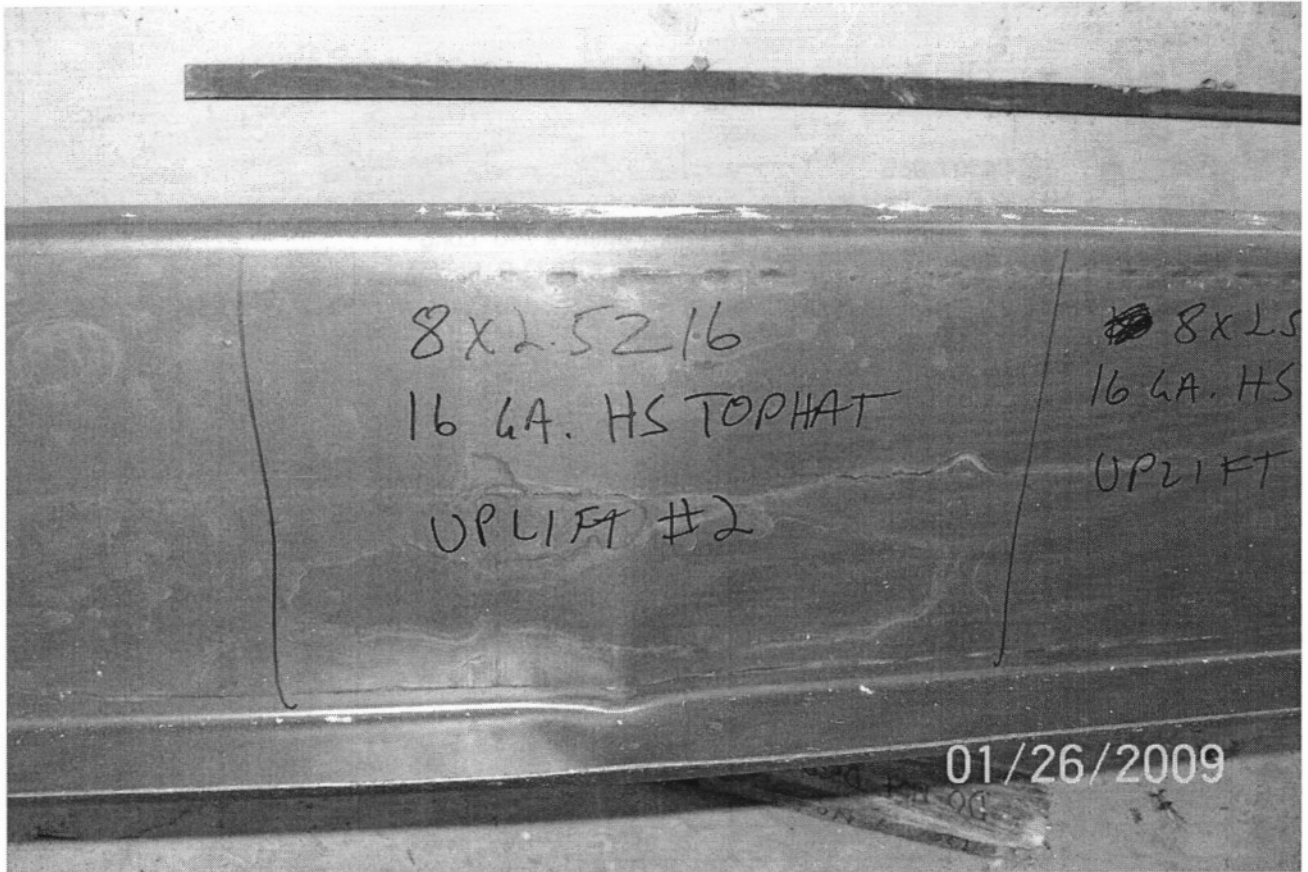 8X2.5Z16
16 GA. HS TOPHAT
UPLIFT #2
8X2.5
16 GA. HS
UPLIFT
01/26/2009